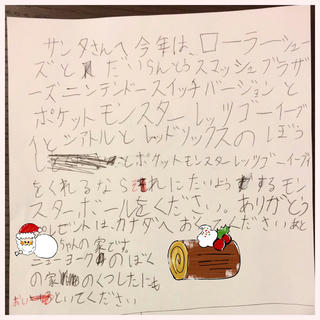 サンタさんへ 今年は、ローラーシュー
ズと だいらんとうスマッシュブラザ
ーズニンテンドースイッチバージョンと
ポケットモンスターレッツゴーイーブ
イとシアトルとレッドソックスのぼう
し とポケットモンスターレッツゴーイーブイ
をくれるなら それにたいようするモン
スターボールをください。ありがとう
プレゼントは、カナダへ おくってください あと
ちゃんの家です。
ニューヨークのぼく
の家 のくつしたにも
おいといてください